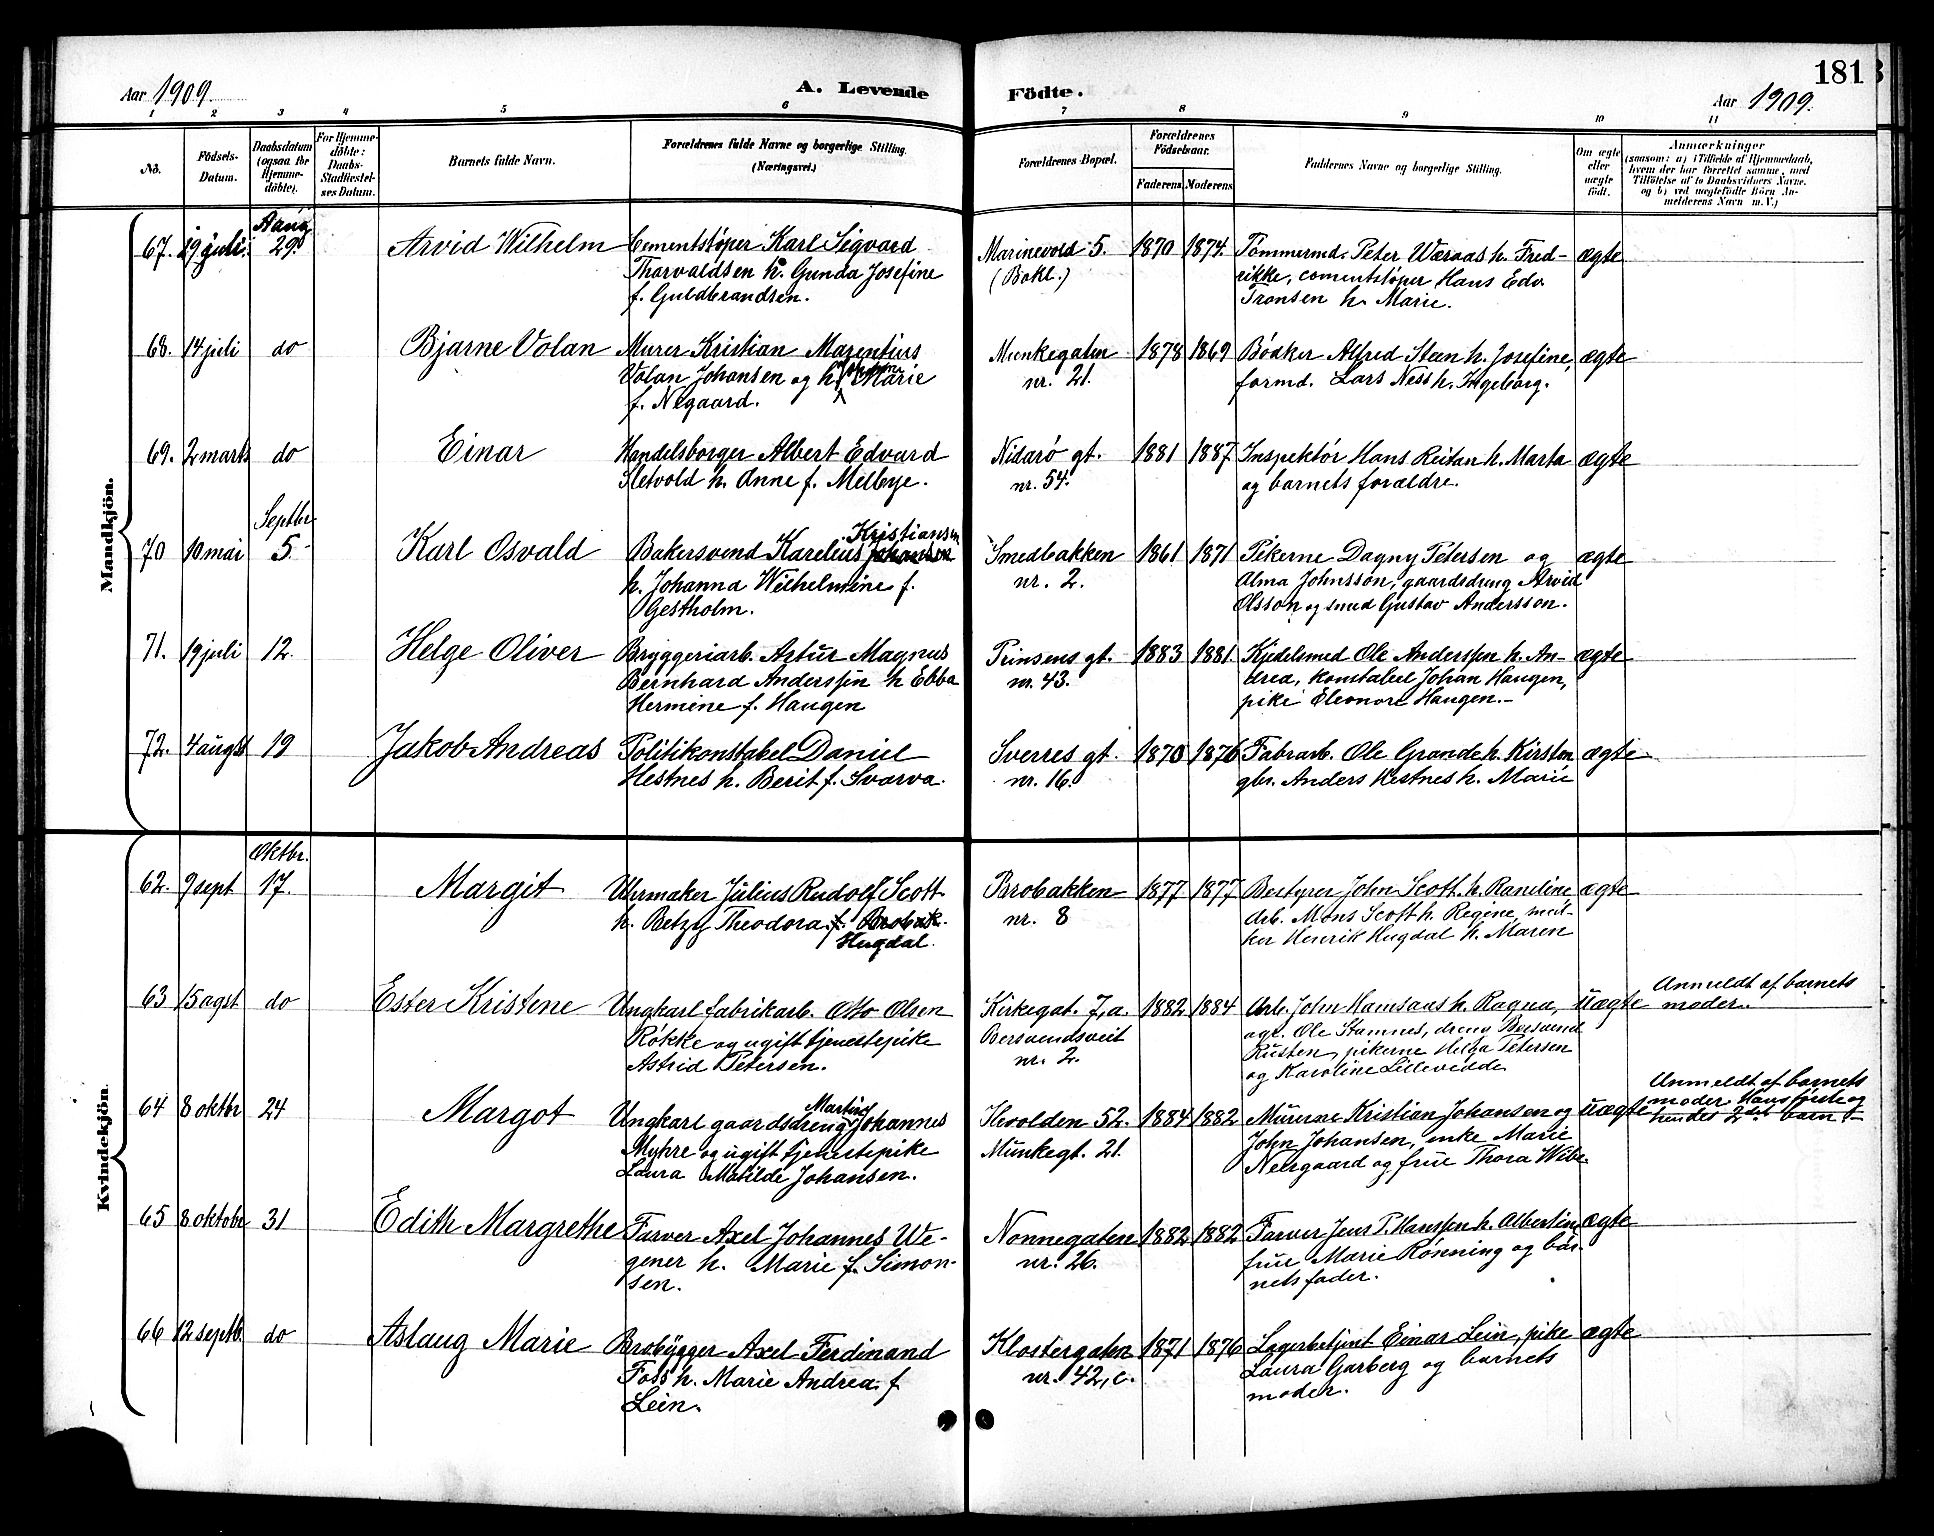 181
Aar 1909.
A. Levende Födte.
Aar 1909.
1 2 3 4 5 6 7 8 9 10 11
No.
Födsels-
Datum.
Daabsdatum
(ogsaa for
Hjemme-
döbte).
For Hjemme-
döbte:
Daabs-
Stadfæstel-
ses Datum.
Barnets fulde Navn.
Forældrenes fulde Navne og borgerlige Stilling.
(Næringsvei.)
Forældrenes Bopæl.
Forældrenes
Födselsaar.
Faderens Moderens
Faddernes Navne og borgerlige Stilling.
Om ægte
eller
uægte
født.
Anmærkninger
(saasom: a) i Tilfælde af Hjemmedaab,
hvem der har forrettet samme, med
Tilföielse af to Daabsvidners Navne.
og b) ved uægtefödte Börn An-
melderens Navn m. V.)
Mandkjön.
Aaug.
67. 19 juli. 29. Arvid Wilhelm Cementstøper Karl Sigvard Marinevold 5. 1870 1874. Tømmermd. Peter Wæraas h. Fred- ægte
Thorvaldsen h. Gunda Josefine (Bakl.) rikke, cementstøper Hans Edv.
f. Guldbrandsen. Tronsen h. Marie.
68. 14 juli do Bjarne Volan Murer Kristian Marentius Munkegaten 1878 1869 Bødker Alfred Steen h. Josefine, ægte
Volan Johansen og h. Marie nr. 21. formd. Lars Ness h. Ingeborg.
f. Negaard.
69. 2 marts do Einar Handelsborger Albert Edvard Nidarø gt. 1881 1887 Inspektør Hans Reitan h. Marta ægte
Sletvold h. Anne f. Melbye. nr. 54. og barnets forældre.
Septbr.
Kristiansen
70 10 mai 5. Karl Osvald Bakersvend Karelius Johansen Smedbakken 1861 1871 Pikerne Dagny Petersen og ægte
h. Johanna Wilhelmine f. nr. 2. Alma Johnsson, gaardsdreng Arvid
Gestholm. Olsson og smed Gustav Andersson.
71. 19 juli 12. Helge Oliver Bryggeriarb. Artur Magnus Prinsens gt. 1883 1881 Kjedelsmed Ole Anderssen h. An- ægte
Bernhard Anderssen h Ebba nr. 43. drea, konstabel Johan Haugen,
Hermine f. Haugen pike Eleonore Haugen.
72. 4 augst 19 Jakob Andreas Politikonstabel Daniel Sverres gt. 1870 1876 Fabrarb. Ole Grande h. Kirsten ægte
Hestnes h. Berit f. Svarva. nr. 16. gbr. Anders Hestnes h. Marie
Kvindekjön.
Oktbr.
62. 9 sept 17. Margit Uhrmaker Julius Rudolf Scott Brobakken 1877 1877 Bestyrer John Scott h. Randine ægte
h. Betzy Theodora f. Brobak. nr. 8 arb. Mons Scott h. Regine, møl-
Hugdal. ker Henrik Hugdal h. Maren
63 15 agst do Ester Kristene Ungkarl fabrikarb. Otto Olsen Kirkegat. 7, a. 1882 1884 Arb. John Hamsaas h. Ragna, uægte Anmeldt af barnets
Røkke og ugift tjenestepike Bersvendsveit agt. Ole Stamnes, dreng Bersvend moder.
Astrid Petersen. nr. 2. Rusten, pikerne Helga Petersen
og Karoline Lillevedde
Martin
64 8 oktbr 24 Margot Ungkarl gaardsdreng Johannes Hvolden 52. 1884 1882 Murerne Kristian Johansen og uægte Anmeldt af barnets
Myhre og ugift tjenestepike Munkegt. 21. John Johansen, enke Marie moder Hans første og
Laura Matilde Johansen. Neergaard og frue Thora Wibe hendes 2det barn
65 8 oktobr 31 Edith Margrethe Farver Axel Johannes We- Nonnegaten 1882 1882 Farver Jens P. Hanssen h. Albertine ægte
gener h. Marie f. Simon- nr. 26. frue Marie Rønning og bar-
sen. nets fader.
66 12 septb. do Aslaug Marie Brobygger Axel Ferdinand Klostergaten 1871 1876 Lagerbetjent Einar Lein, pike ægte
Foss h. Marie Andrea f. nr. 42, c. Laura Garberg og barnets
Lein. moder.